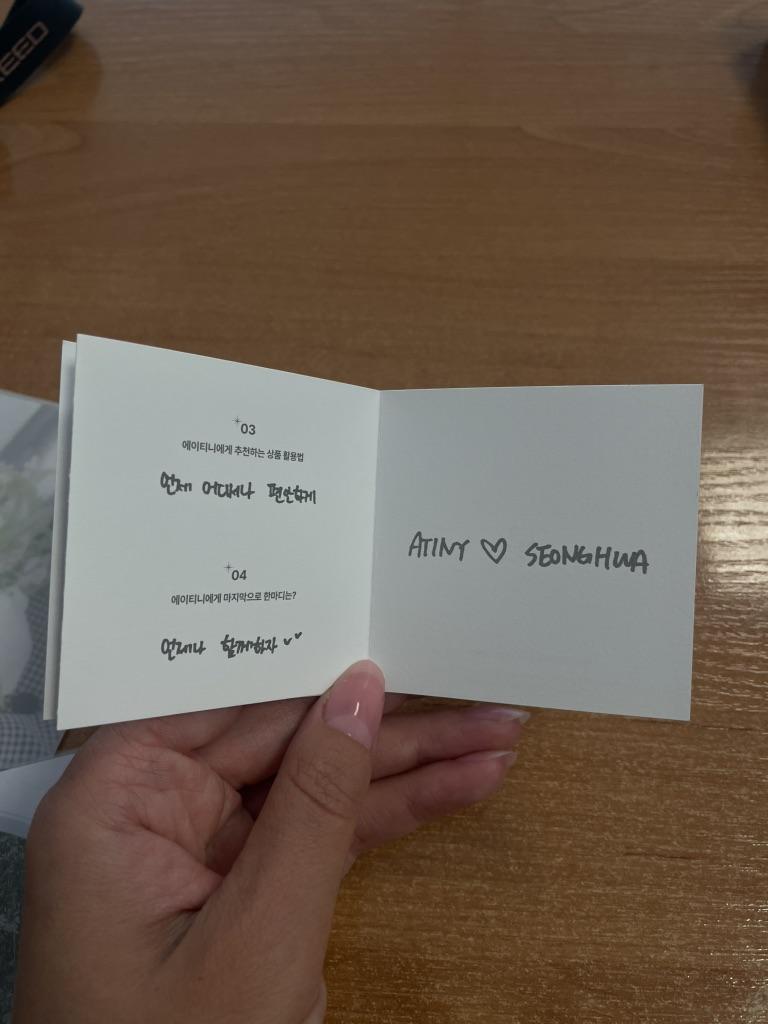 EED
03
에이티니에게 추천하는 상품 활용법
언제 어디서나 편안하게
04
에이티니에게 마지막으로 한마디는?
언제나 함께하자
ATINY ♡ SEONGHWA